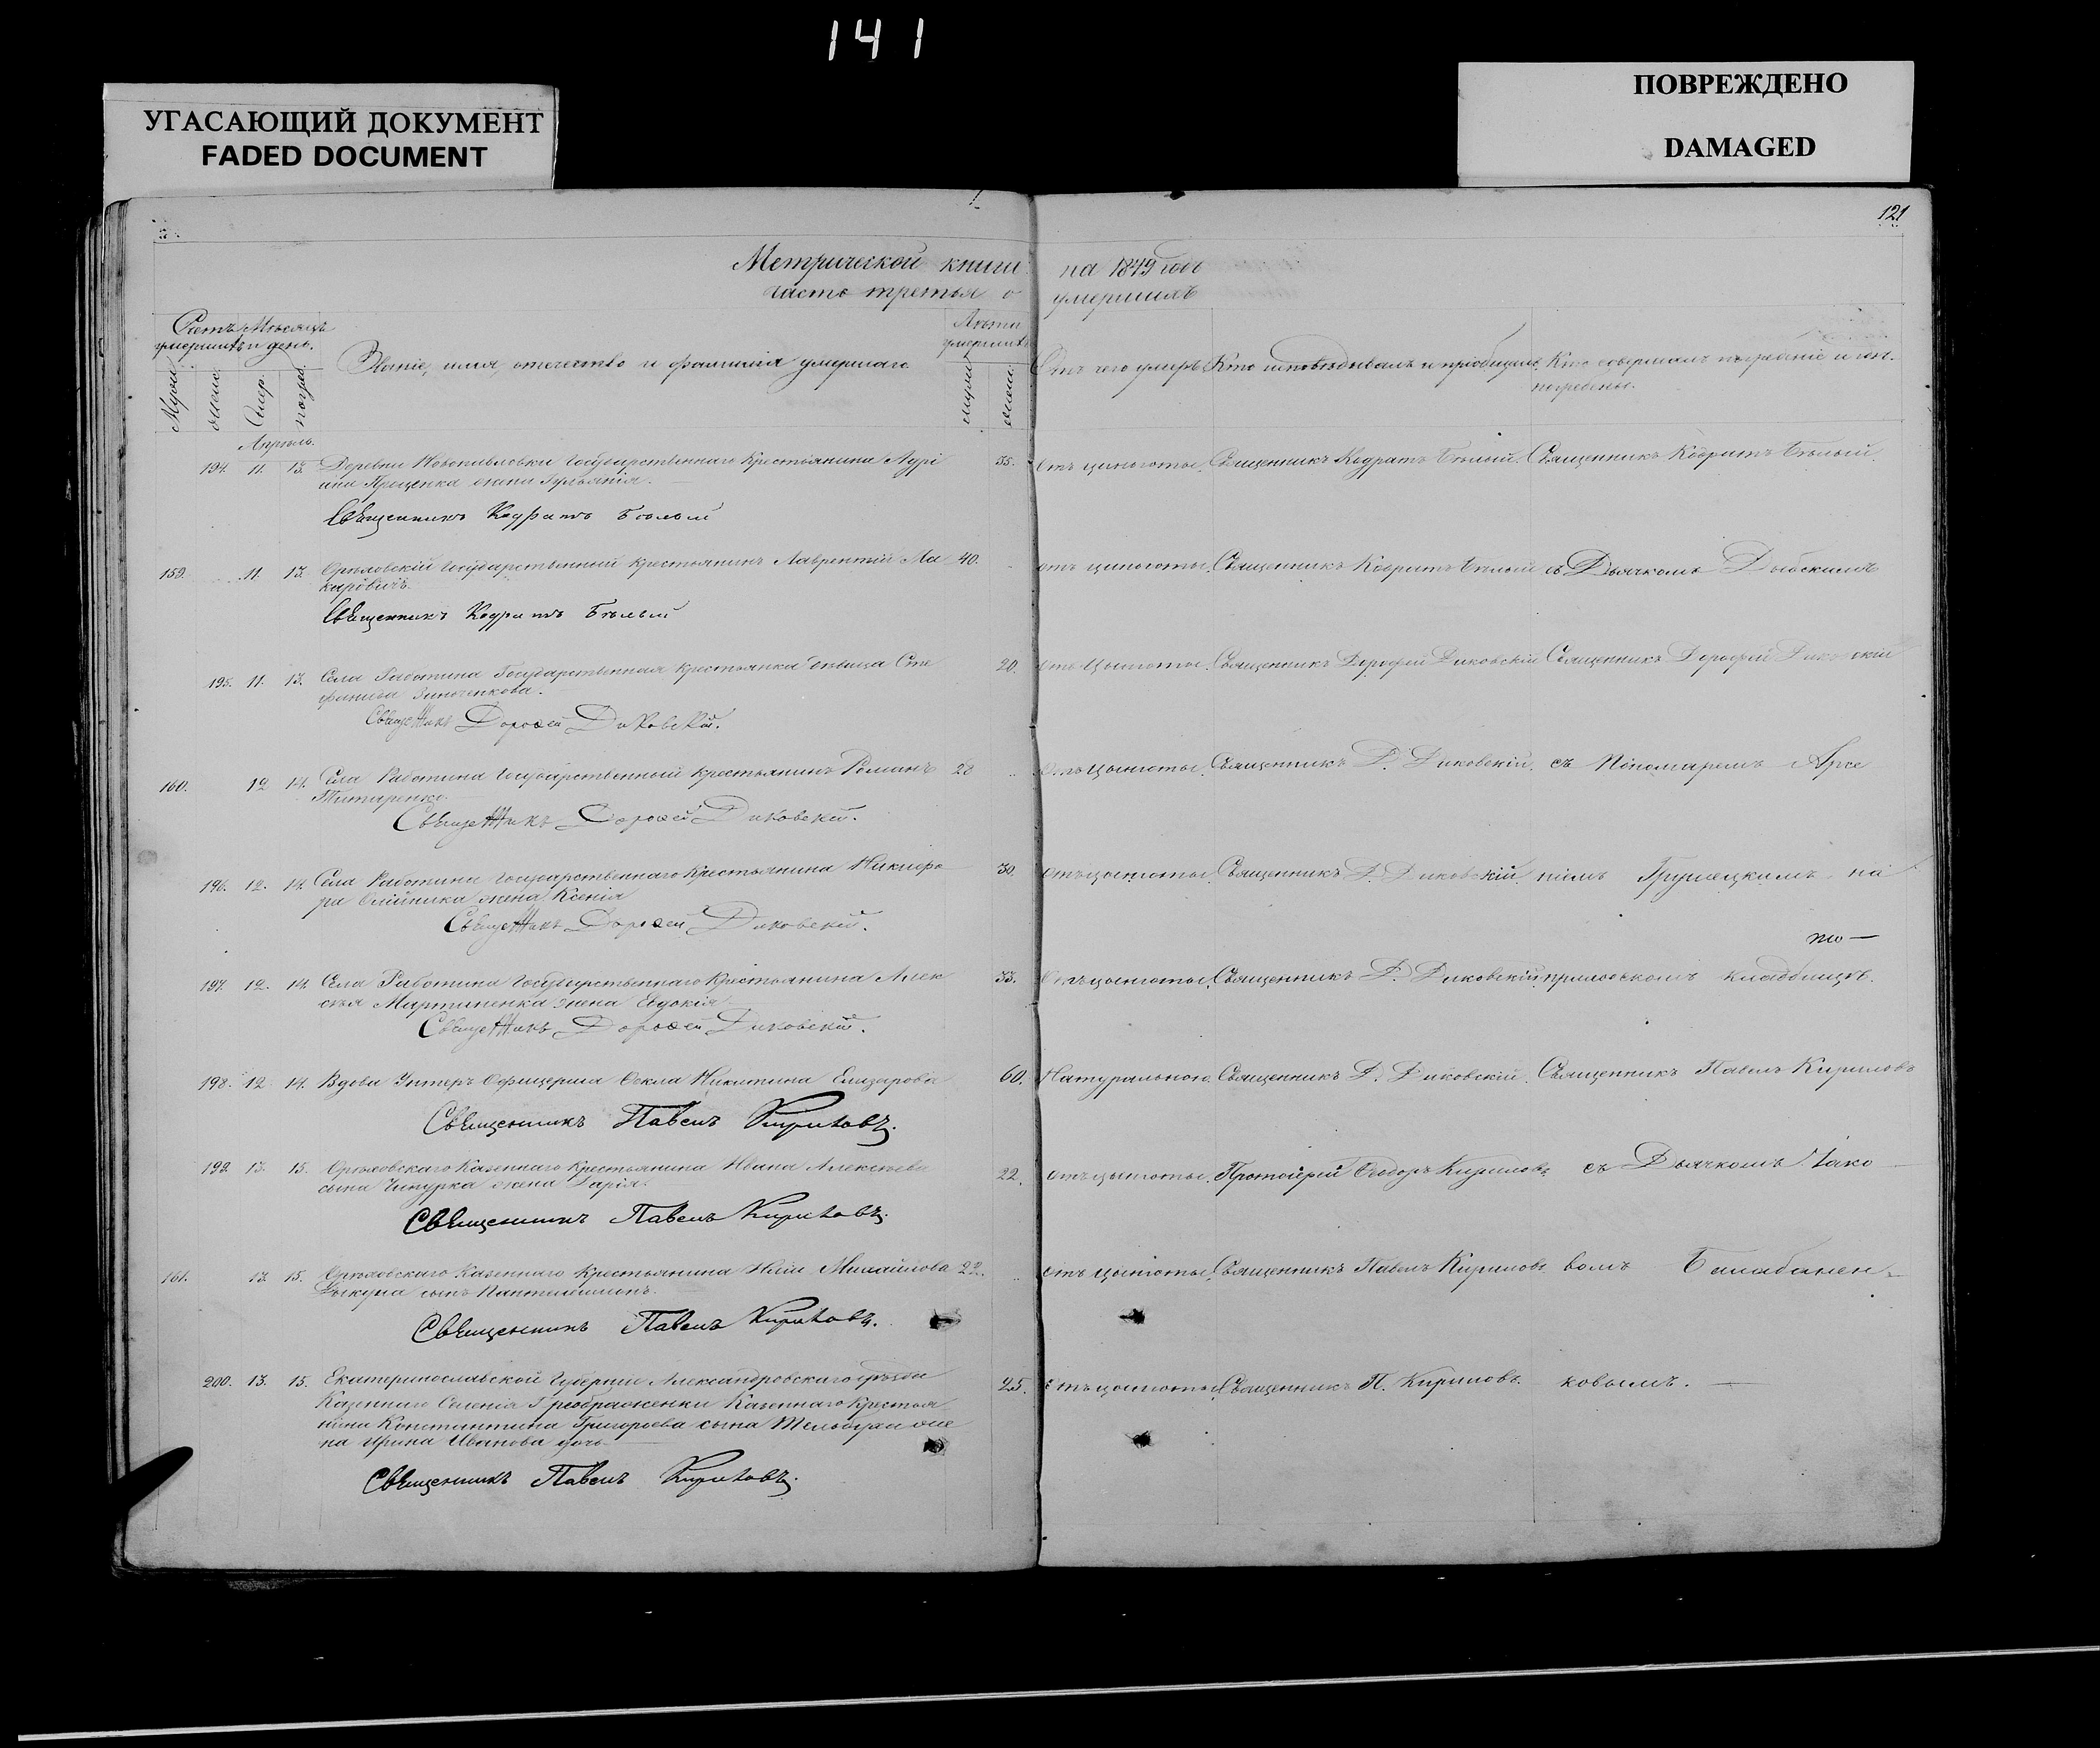 141
УГАСАЮЩИЙ ДОКУМЕНТ
FADED DOCUMENT
ПОВРЕЖДЕНО
DAMAGED
121
Метрической книги на 1849 годъ
часть третья о умершихъ
Счетъ умершихъ
Мѣсяцъ и день.
Званіе, имя, отчество и фамилія умершаго
Лѣта умершихъ
Отъ чего умеръ
Кто исповѣдывалъ и пріобщалъ
Кто совершалъ погребеніе и гдѣ погребены.
Апрѣль.
194. 11. 13. Деревни Новопавловки Государственнаго Крестьянина 35. Отъ цынготы. Священникъ Кодратъ Бѣлый. Священникъ Кодратъ Бѣлый
жена
Священникъ Кодратъ Бѣлый
159. 11. 13. Орѣховскій Государственный крестьянинъ Лаврентій Ма 40. отъ цынготы. Священникъ Кодратъ Бѣлый съ Дьячкомъ
каровичъ.
Священникъ Кодратъ Бѣлый
195. 11. 13. Села Работина Государственная крестьянка дѣвица Сте 20. отъ Цынготы. Священникъ Дорофей Диковскій Священникъ Дорофей Диковскій
фанида Зинченкова.
Священникъ Дорофей Диковскій.
160. 12 14. Села Работина Государственный крестьянинъ Романъ 28 Отъ Цынготы. Священникъ Д. Диковскій. съ Пономаремъ Арсе
Титаренко.
Священникъ Дорофей Диковскій.
196. 12. 14. Села Работина Государственнаго Крестьянина Никифо 30. Отъ цынготы. Священникъ Д. Диковскій. ніемъ Грушецкимъ на
ра Олійника жена Ксенія
Священникъ Дорофей Диковскій.
то —
197. 12. 14. Села Работина Государственнаго Крестьянина Алек 33. Отъ цынготы. Священникъ Д. Диковскій. приходскомъ кладбищѣ.
сѣя Мартиненка жена Евдокія
Священникъ Дорофей Диковскій.
198. 12 14. Вдова Унтеръ Офицерша Ѳекла Никитина Елизарова 60. Натуральною. Священникъ Д. Диковскій. Священникъ Павелъ Кириловъ
Священникъ Павелъ Кириловъ.
199. 13. 15. Орѣховскаго Казеннаго Крестьянина Ивана Алексѣева 22. отъ цынготы. Протоіерей Ѳеодоръ Кириловъ съ Дьячкомъ Іако
сына жена Дарія.
Священникъ Павелъ Кириловъ.
161. 13. 15. Орѣховскаго Казеннаго Крестьянина Иліи Михайлова 22. отъ цынготы. Священникъ Павелъ Кириловъ вомъ Балабанен-
сынъ Пантелеимонъ.
Священникъ Павелъ Кириловъ.
200. 13. 15. Екатеринославской Губерніи Александровскаго уѣзда 25. Отъ цынготы. Священникъ П. Кириловъ. ковымъ. —
Казеннаго Селенія Преображенки Казеннаго Крестья
нина Константина Григорьева сына же
на Ирина Иванова дочь
Священникъ Павелъ Кириловъ.